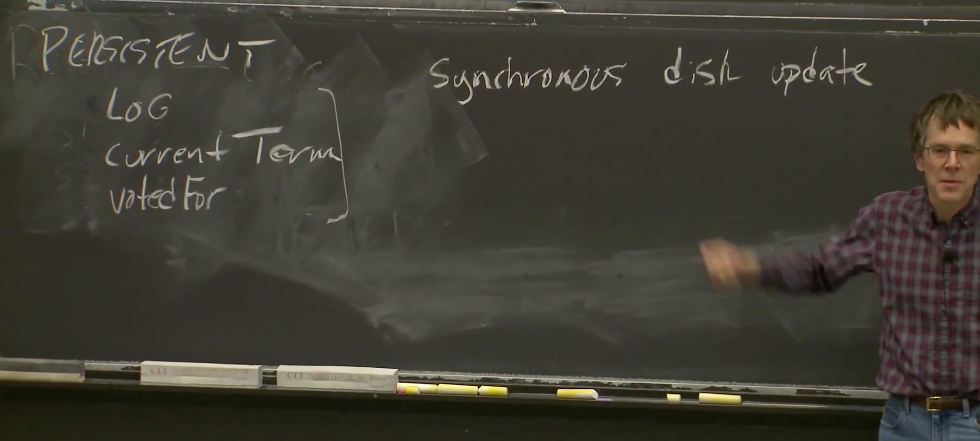 PERSISTENT
Log
currentTerm
votedFor
Synchronous disk update